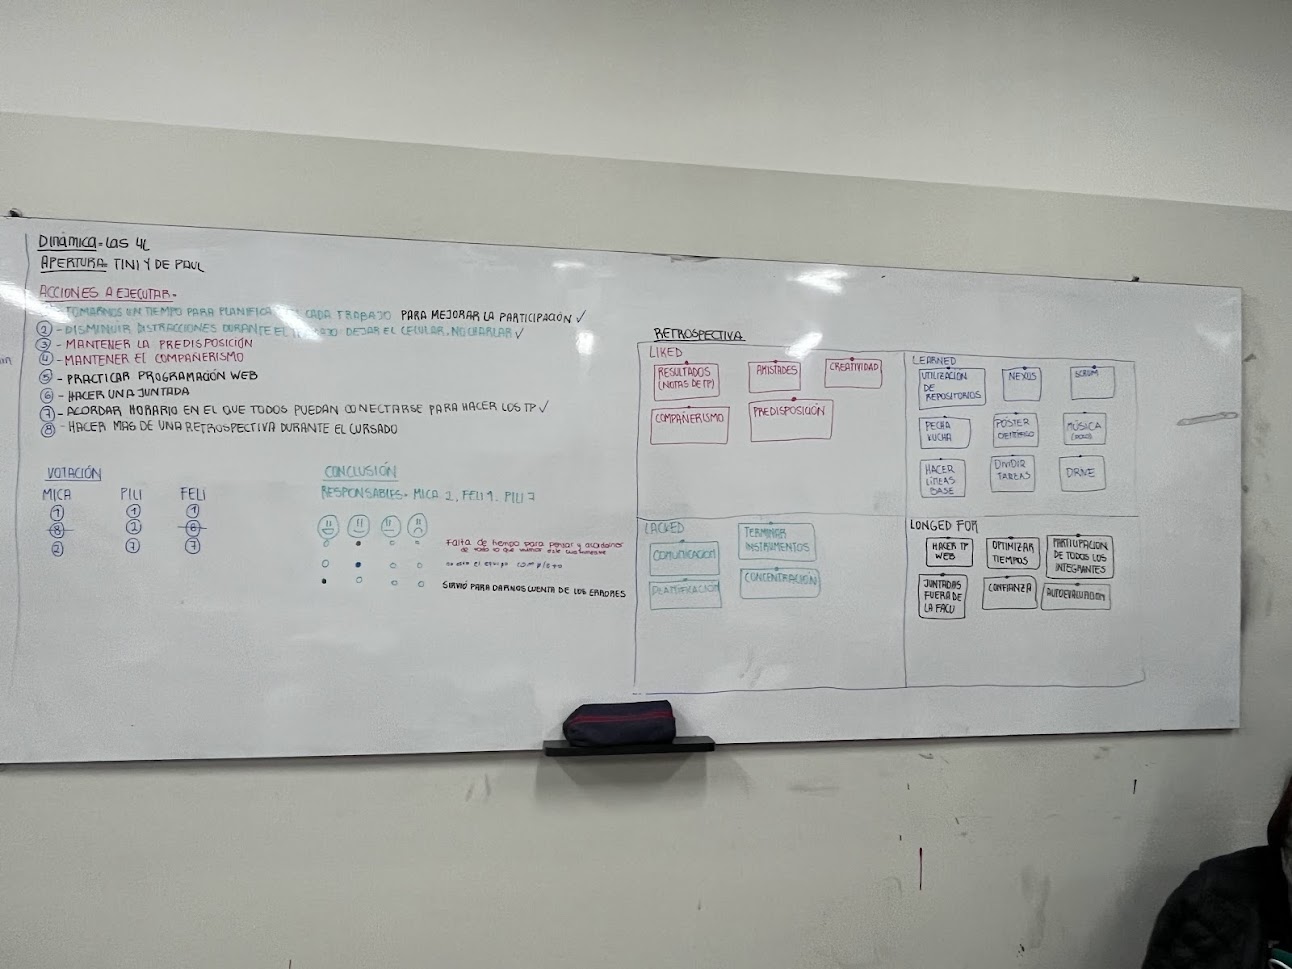 Dinámica= Las 4L
APERTURA= TINI Y DE PAUL
ACCIONES A EJECUTAR=
- TOMARNOS UN TIEMPO PARA PLANIFICAR CADA TRABAJO PARA MEJORAR LA PARTICIPACIÓN ✓
② - DISMINUIR DISTRACCIONES DURANTE EL DEJAR EL CELULAR, NO CHARLAR ✓
③ - MANTENER LA PREDISPOSICIÓN
④ - MANTENER EL COMPAÑERISMO
⑤ - PRACTICAR PROGRAMACIÓN WEB
⑥ - HACER UNA JUNTADA
⑦ - ACORDAR HORARIO EN EL QUE TODOS PUEDAN CONECTARSE PARA HACER LOS TP ✓
⑧ - HACER MAS DE UNA RETROSPECTIVA DURANTE EL CURSADO
VOTACIÓN
MICA PILI FELI
① ① ①
⑧
② ⑦ ⑦
CONCLUSIÓN
RESPONSABLES= MICA 2, FELI 1, PILI 7
Falta de tiempo para pensar y
de todo lo que
el equipo completo
SIRVIÓ PARA DARNOS CUENTA DE LOS ERRORES
RETROSPECTIVA
LIKED
RESULTADOS
(NOTAS DE TP)
AMISTADES
CREATIVIDAD
COMPAÑERISMO
PREDISPOSICIÓN
LEARNED
UTILIZACIÓN
DE
REPOSITORIOS
NEXUS
SCRUM
PECHA
KUCHA
PÓSTER
CIENTÍFICO
MÚSICA
HACER
LÍNEAS
BASE
DIVIDIR
TAREAS
DRIVE
LACKED
COMUNICACION
TERMINAR
INSTRUMENTOS
PLANIFICACION
CONCENTRACIÓN
LONGED FOR
HACER TP
WEB
OPTIMIZAR
TIEMPOS
PARTICIPACION
DE TODOS LOS
INTEGRANTES
JUNTADAS
FUERA DE
LA FACU
CONFIANZA
AUTOEVALUACION